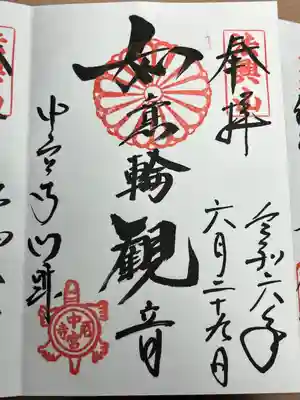 奉拝
令和六年
六月二十九日
如意輪観音
中宮寺門跡
中宮寺